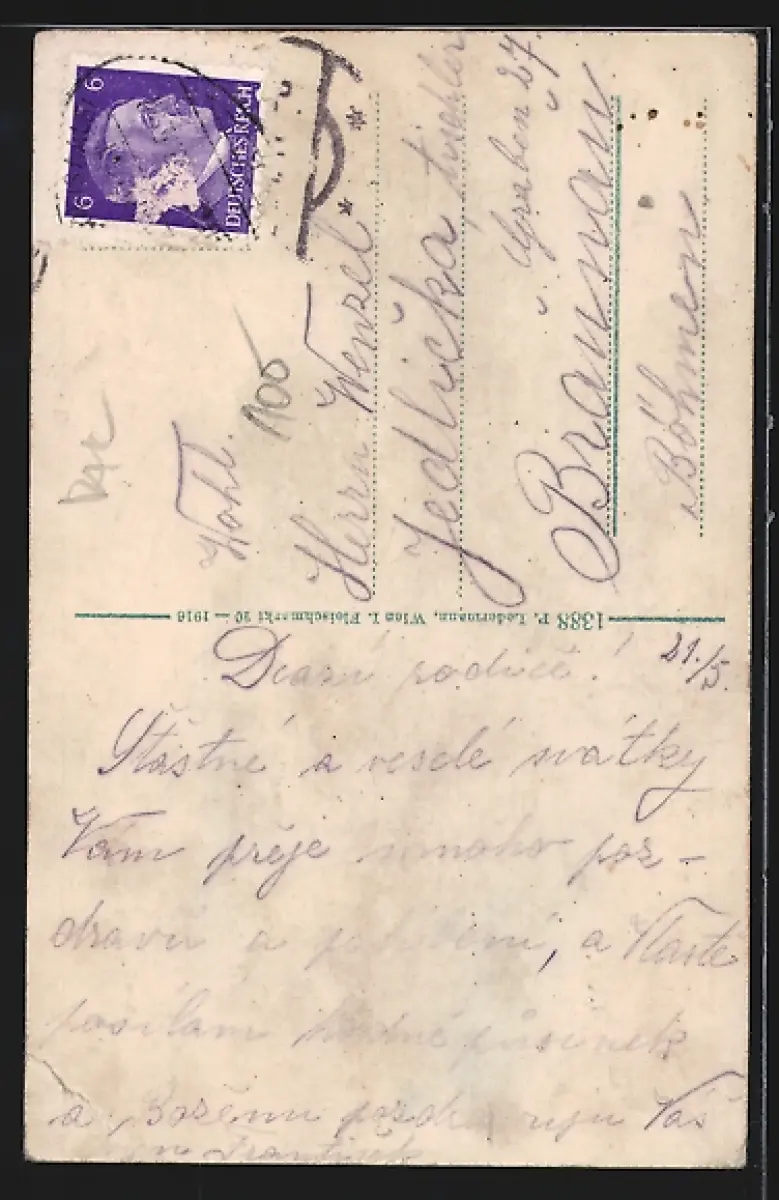 6 6
DEUTSCHES REICH
Wohl.
1100
Herrn Wenzel
Jedlička tischler
Graben 27.
Braunau
Böhmen
1388 P. Ledermann, Wien I. Fleischmarkt 20 — 1916
21./5.
Drazí rodiče!
Štastné a veselé svátky
Vám přeje mnoho poz-
dravů a políbení, a Vlastě
posílám hodně pusinek
a pozdravuju Vás
František